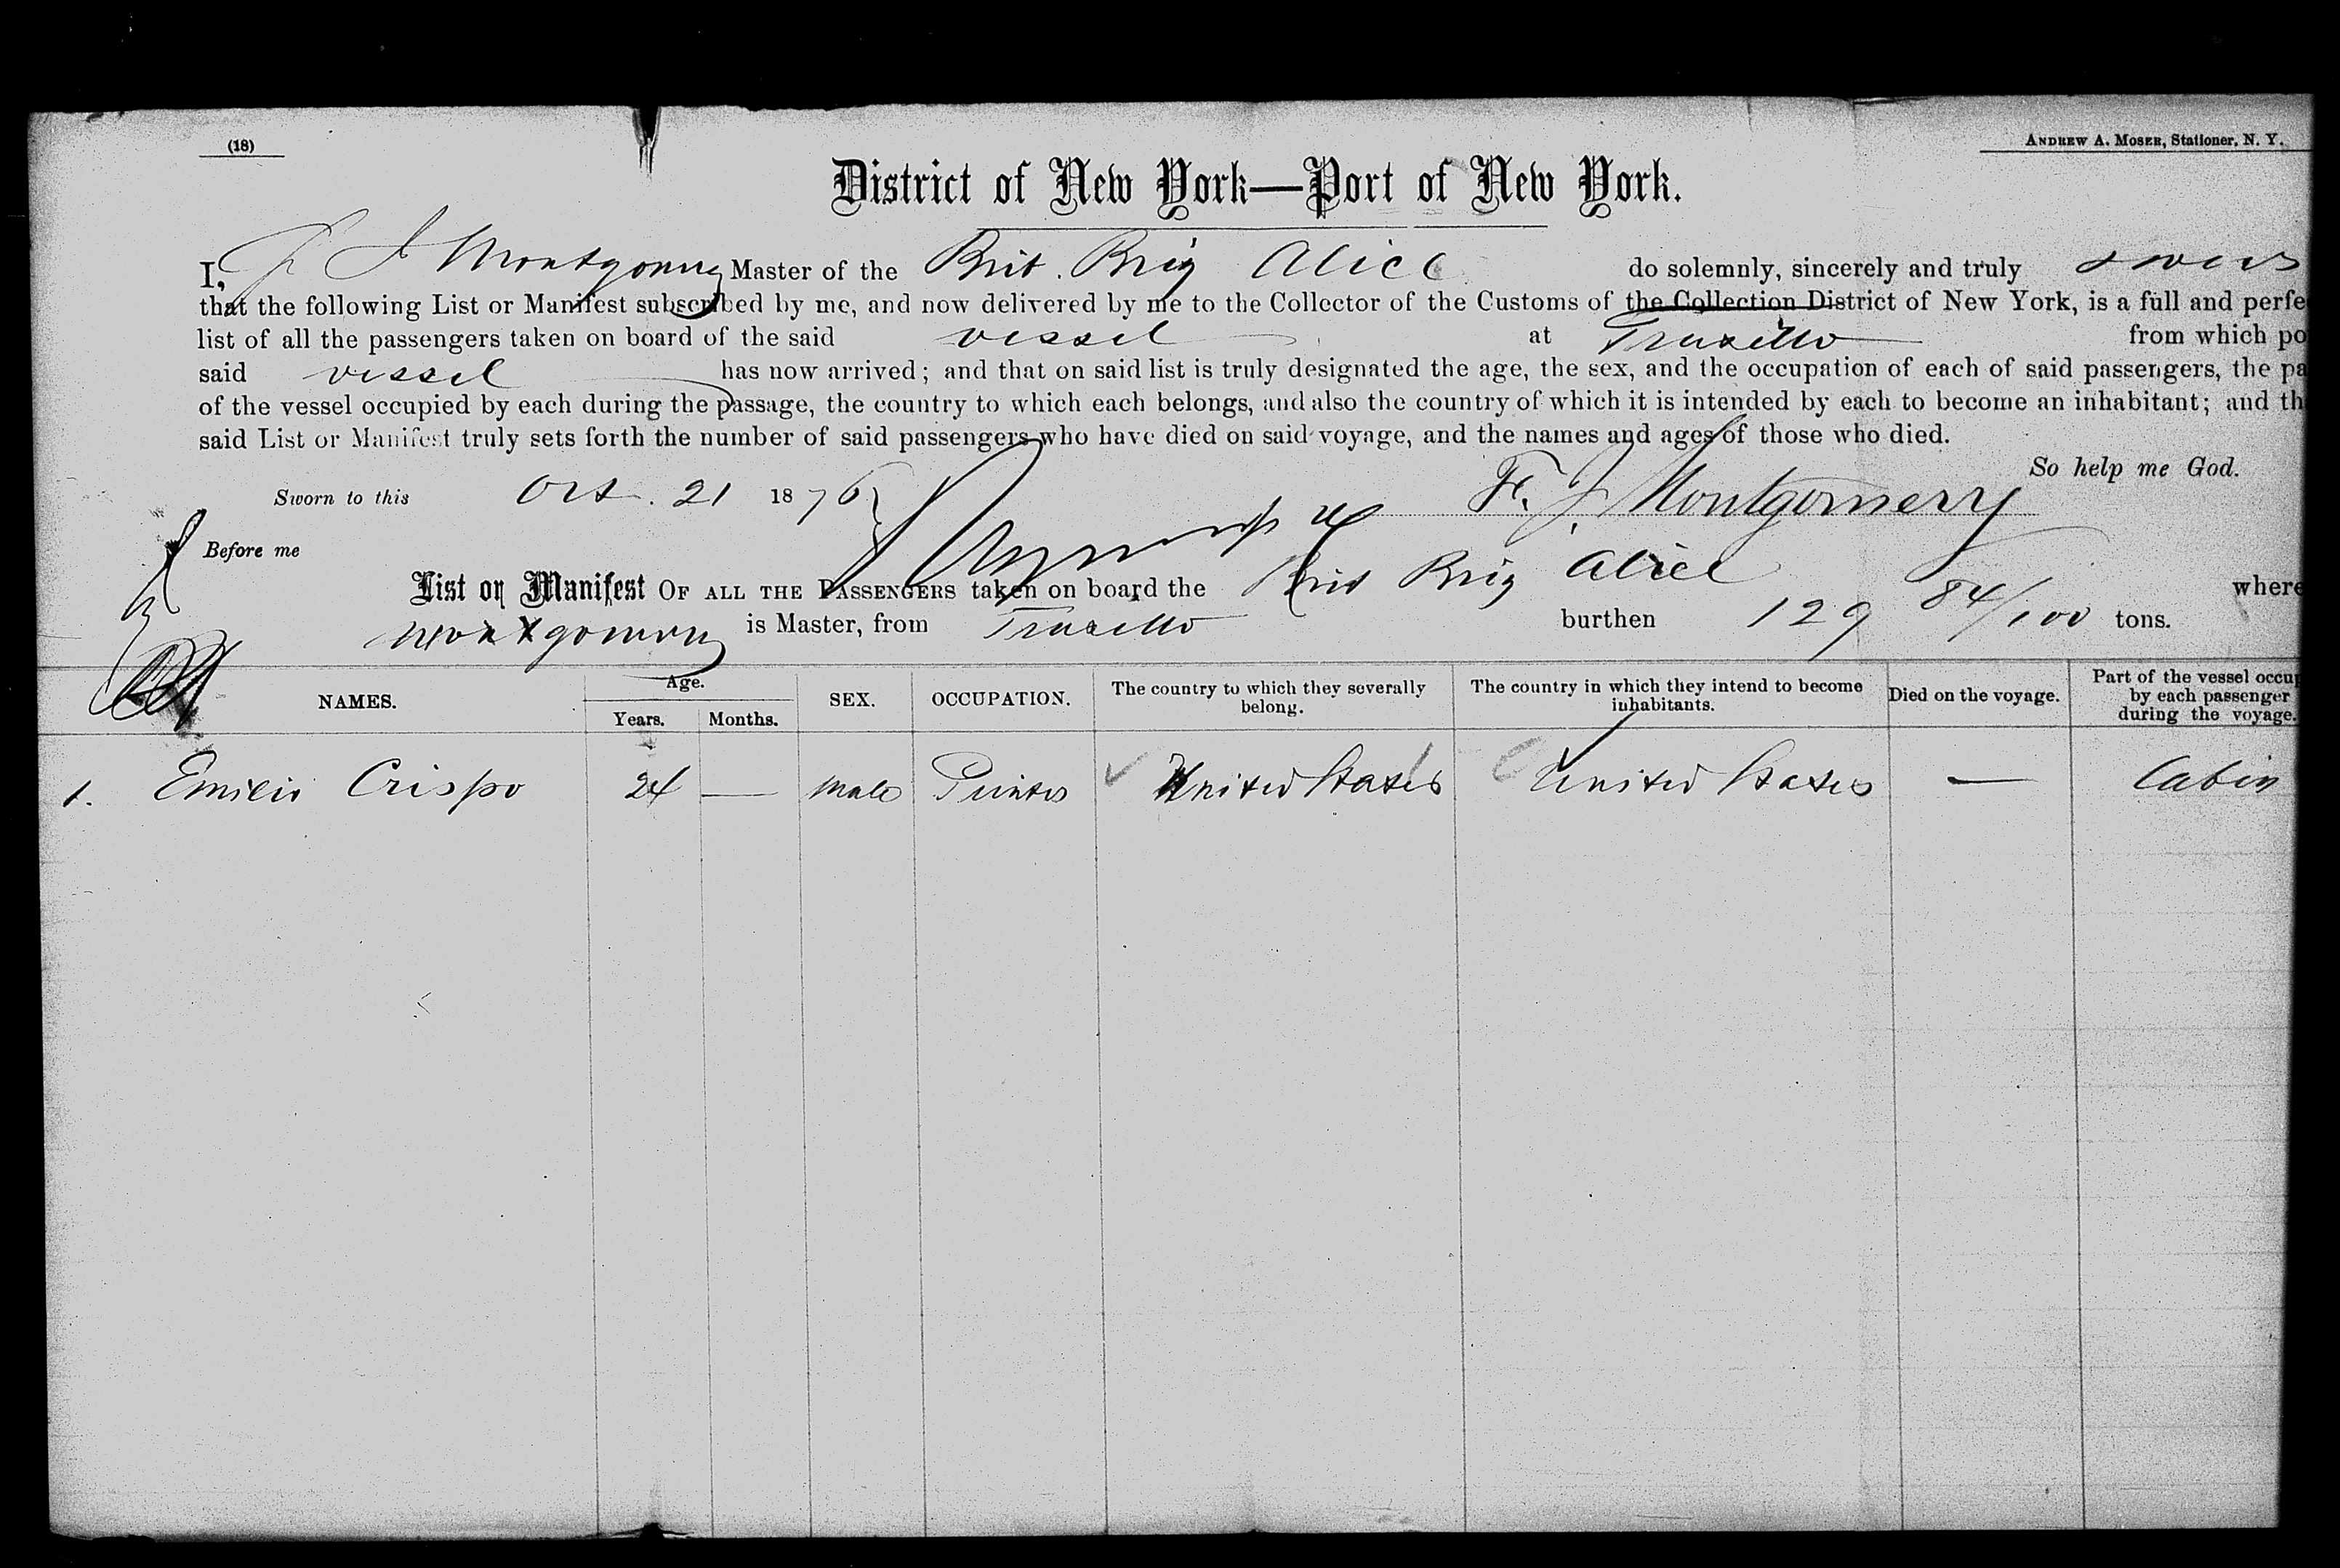 (18)
ANDREW A. MOSER, Stationer, N. Y.
District of New York—Port of New York.
I, F J Montgomery Master of the Brit. Brig Alice do solemnly, sincerely and truly swear
that the following List or Manifest subscribed by me, and now delivered by me to the Collector of the Customs of the Collection District of New York, is a full and perfe
list of all the passengers taken on board of the said vessel at Truxillo from which po
said vessel has now arrived; and that on said list is truly designated the age, the sex, and the occupation of each of said passengers, the pa
of the vessel occupied by each during the passage, the country to which each belongs, and also the country of which it is intended by each to become an inhabitant; and th
said List or Manifest truly sets forth the number of said passengers who have died on said voyage, and the names and ages of those who died.
So help me God.
Sworn to this Oct. 21 1876
F. J. Montgomery
Before me
List or Manifest OF ALL THE PASSENGERS taken on board the Brit Brig Alice where
Montgomery is Master, from Truxillo burthen 129 84/100 tons.
NAMES. Age. Years. Months. SEX. OCCUPATION. The country to which they severally belong. The country in which they intend to become inhabitants. Died on the voyage. Part of the vessel occup by each passenger during the voyage.
1. Emilio Crispo 24 — Male Printer United States United States — Cabin